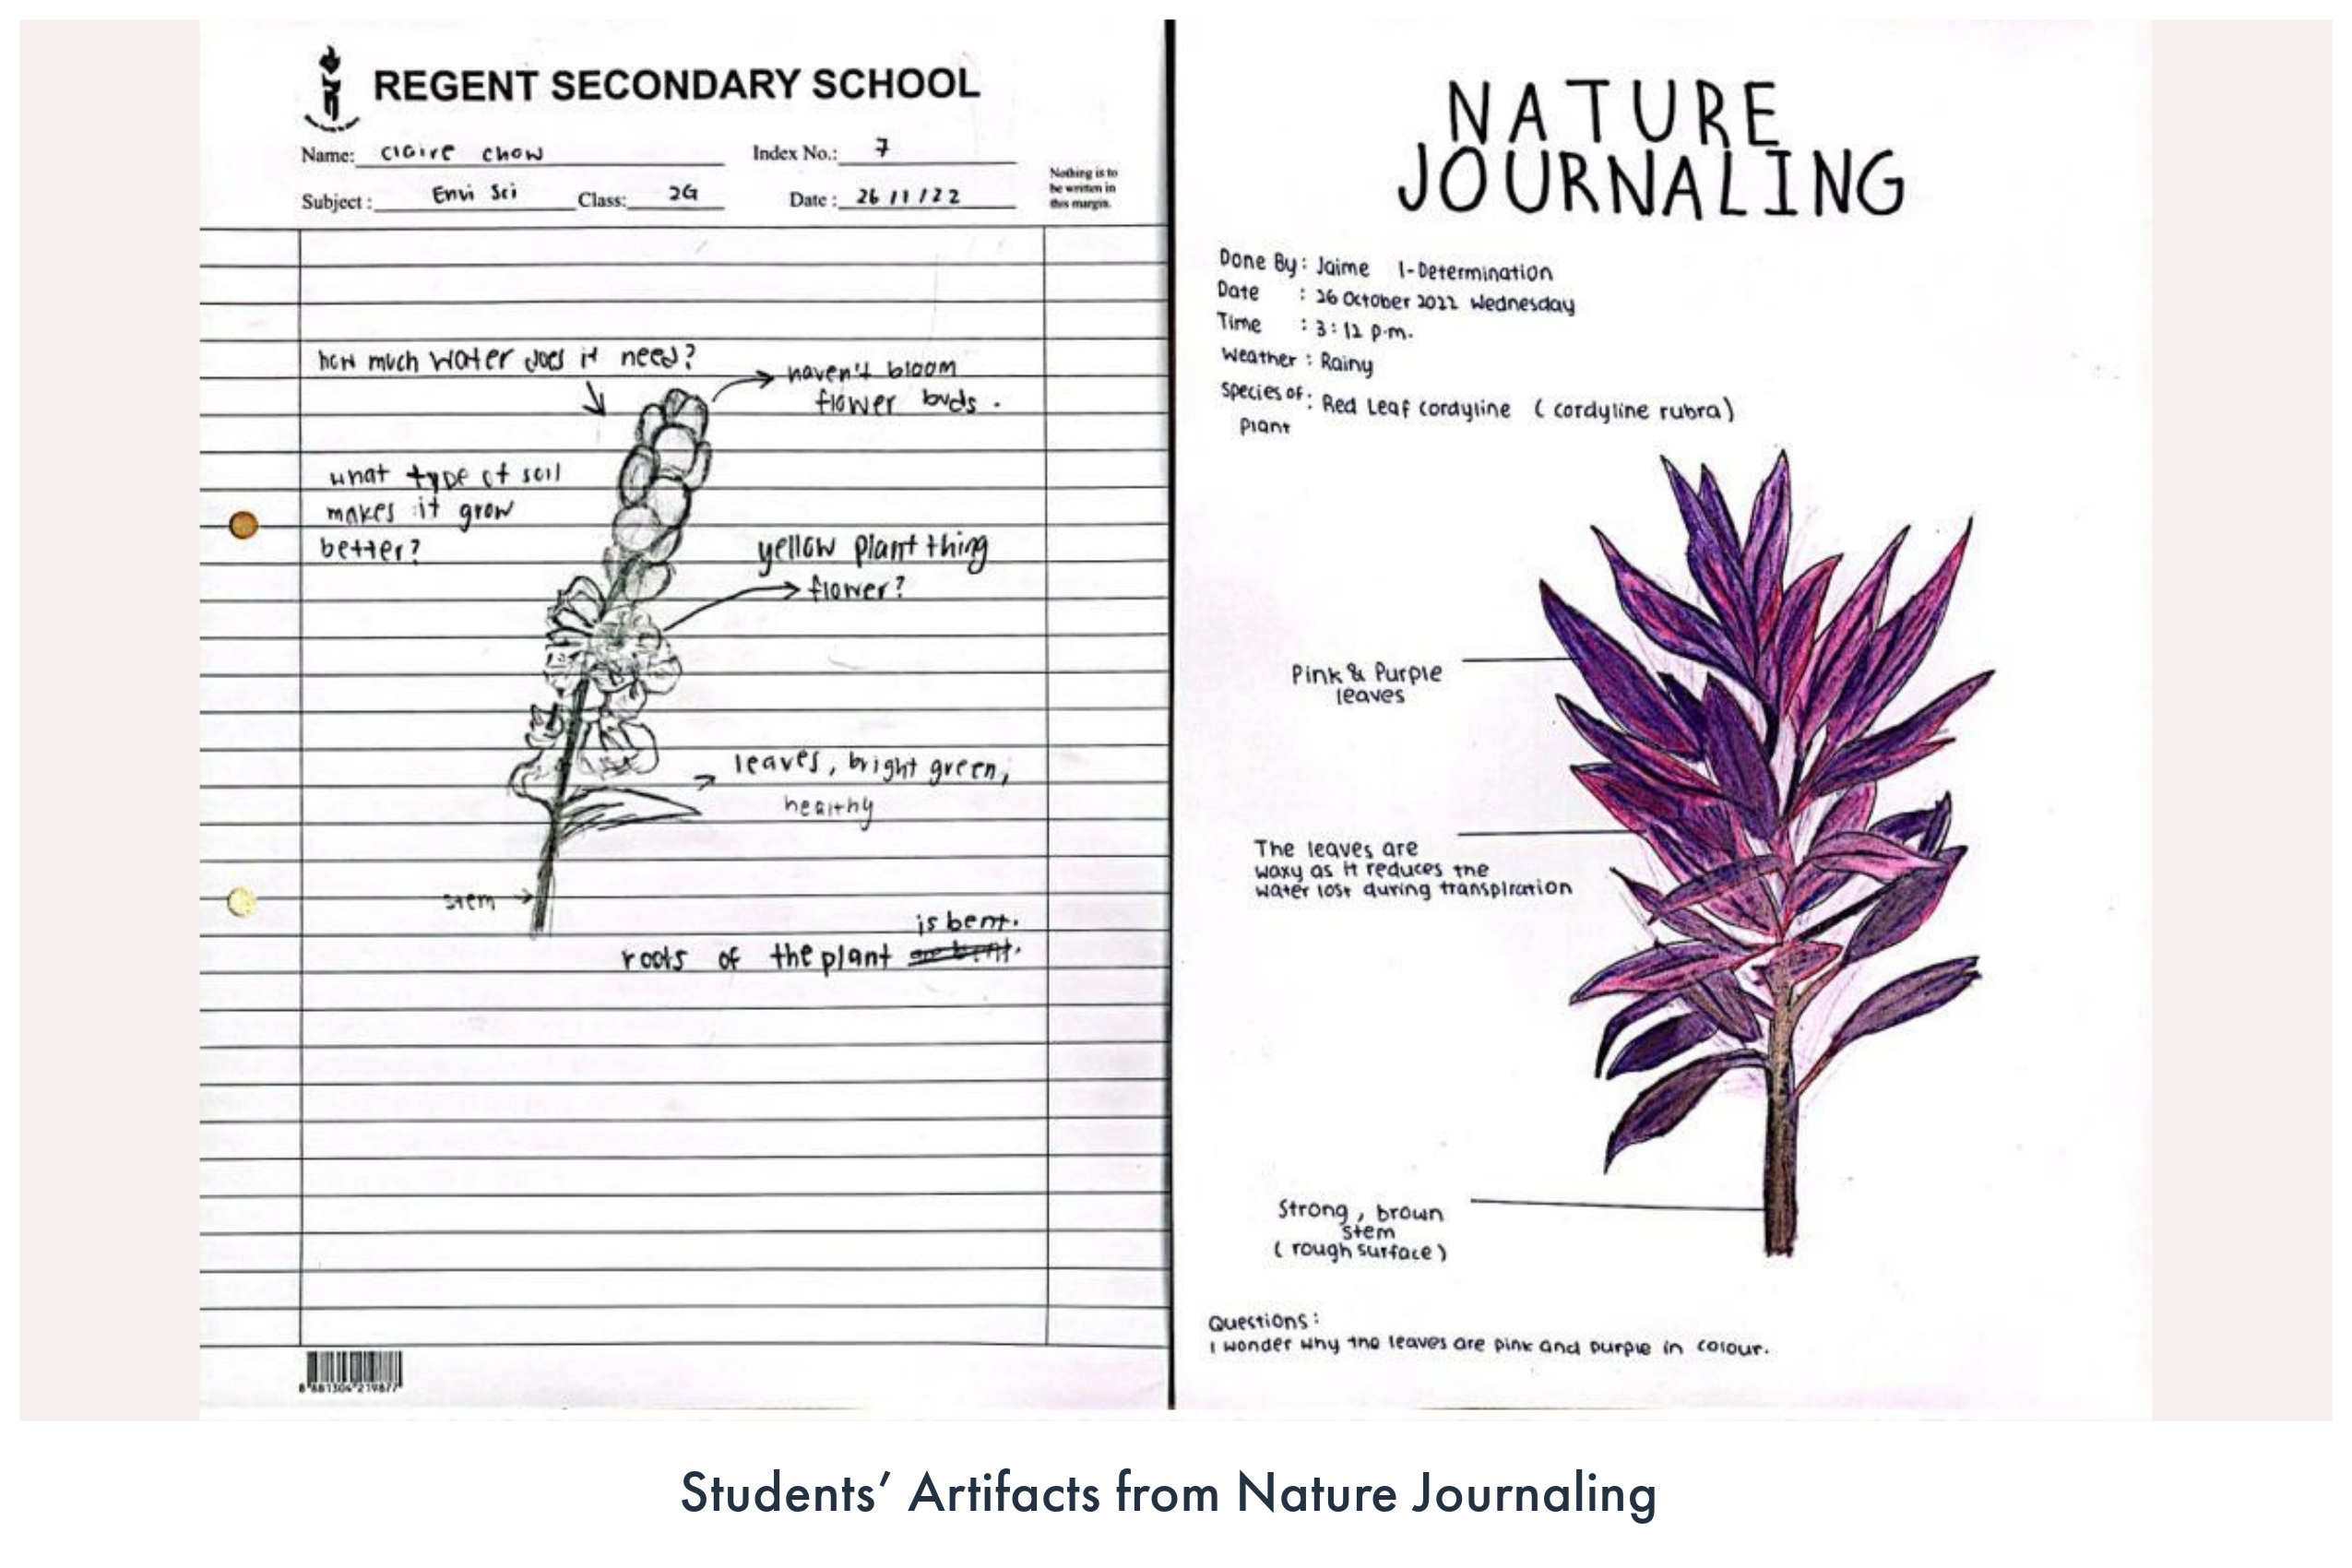 REGENT SECONDARY SCHOOL
Name: Claire Chow
Index No.: 7
Subject : Envi Sci Class: 2G Date : 26/11/22
Nothing is to
be written in
this margin.
how much water does it need?
haven't bloom
flower buds.
what type of soil
makes it grow
better?
yellow plant thing
flower?
leaves, bright green,
healthy
stem
is bent.
roots of the plant are bent.
8 881304 219877
NATURE
JOURNALING
Done By: Jaime 1-Determination
Date : 26 October 2022 Wednesday
Time : 3:12 p.m.
Weather : Rainy
Species of : Red Leaf cordyline (cordyline rubra)
Plant
Pink & Purple
leaves
The leaves are
waxy as it reduces the
water lost during transpiration
Strong, brown
stem
(rough surface)
Questions:
I wonder why the leaves are pink and purple in colour.
Students' Artifacts from Nature Journaling